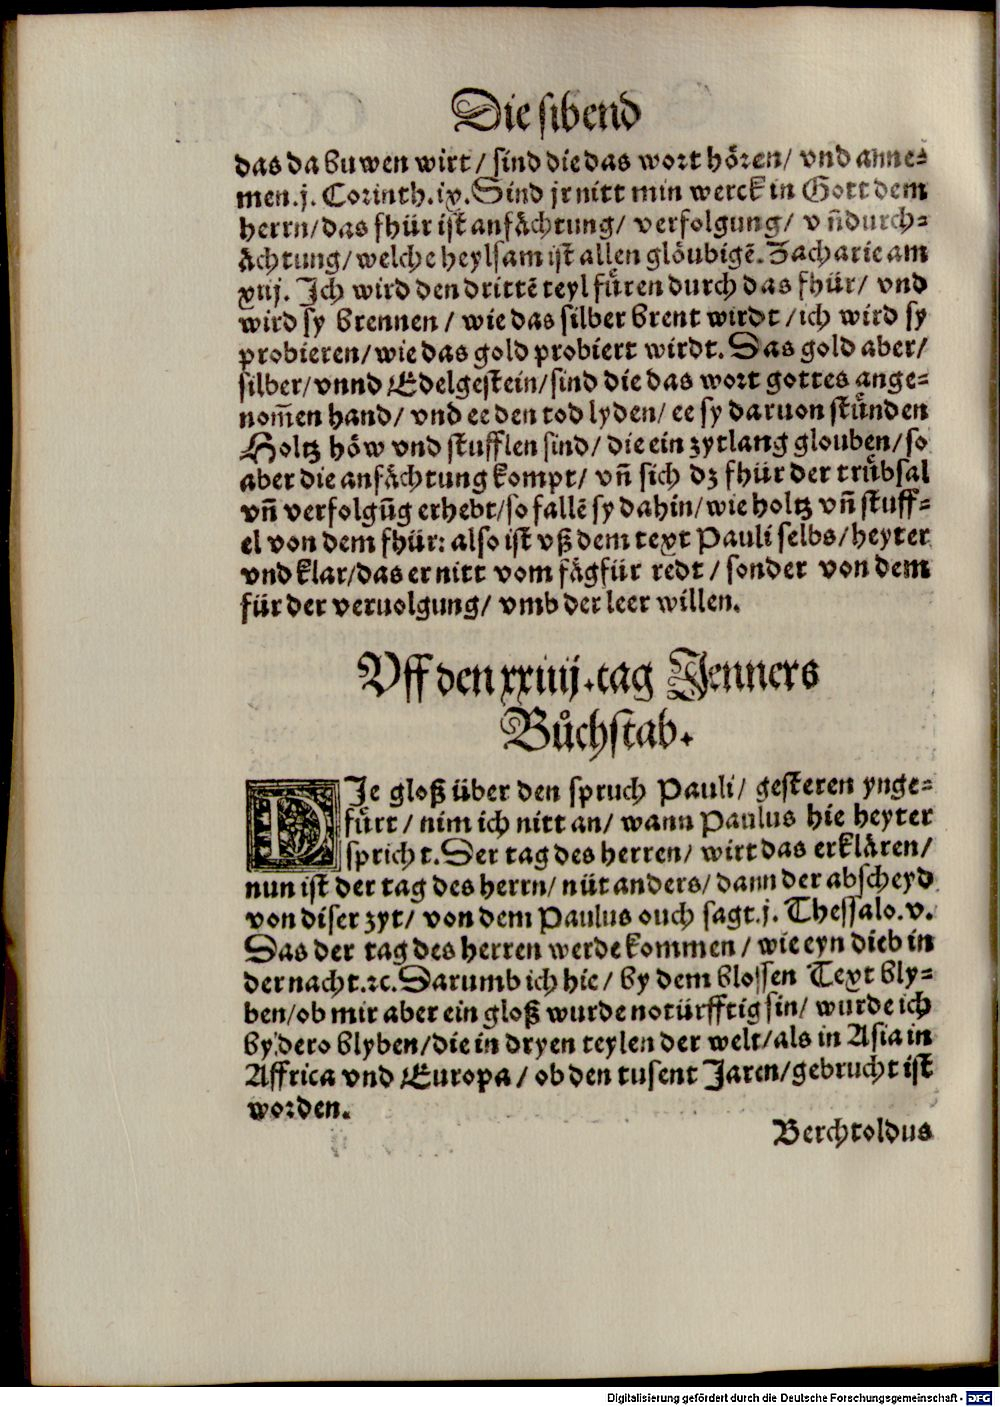 Die sibend
das da buwen wirt/ sind die das wort hören/ vnd anne⸗
men.j. Corinth.ix. Sind jr nitt min werck in Gott dem
herrn/das fhür ist anfächtung/ verfolgung/ vñdurch⸗
ächtung/welche heylsam ist allen glöubigē. Zacharie am
xiij. Ich wird den drittē teyl füren durch das fhür/ vnd
wird sy brennen / wie das silber brent wirdt /ich wird sy
probieren/wie das gold probiert wirdt. Das gold aber/
silber/vnnd Edelgestein/sind die das wort gottes ange⸗
nom̃en hand/ vnd ee den tod lyden/ ee sy daruon stůnden
Holtz höw vnd stufflen sind/ die ein zytlang glouben/so
aber die anfächtung kompt/ vñ sich dz fhür der trůbsal
vñ verfolgūg erhebt/so fallē sy dahin/wie holtz vñ stuff⸗
el von dem fhür: also ist vß dem text Pauli selbs/heyter
vnd klar/das er nitt vom fägfür redt / sonder von dem
für der veruolgung/ vmb der leer willen.
Vff den xxiiij.tag Jenners
Bůchstab.
DIe gloß über den spruch Pauli/ gesteren ynge⸗
fürt / nim ich nitt an/ wann Paulus hie heyter
spricht. Der tag des herren/ wirt das erklären/
nun ist der tag des herrn/ nüt anders/ dann der abscheyd
von diser zyt/ von dem Paulus ouch sagt.j. Thessalo.v.
Das der tag des herren werde kommen / wie eyn dieb in
der nacht.ꝛc. Darumb ich hie/ by dem blossen Text bly⸗
ben/ob mir aber ein gloß wurde notürfftig sin/ wurde ich
by dero blyben/die in dryen teylen der welt/als in Asia in
Affrica vnd Europa / ob den tusent Jaren/gebrucht ist
worden.
Berchtoldus
Digitalisierung gefördert durch die Deutsche Forschungsgemeinschaft - DFG